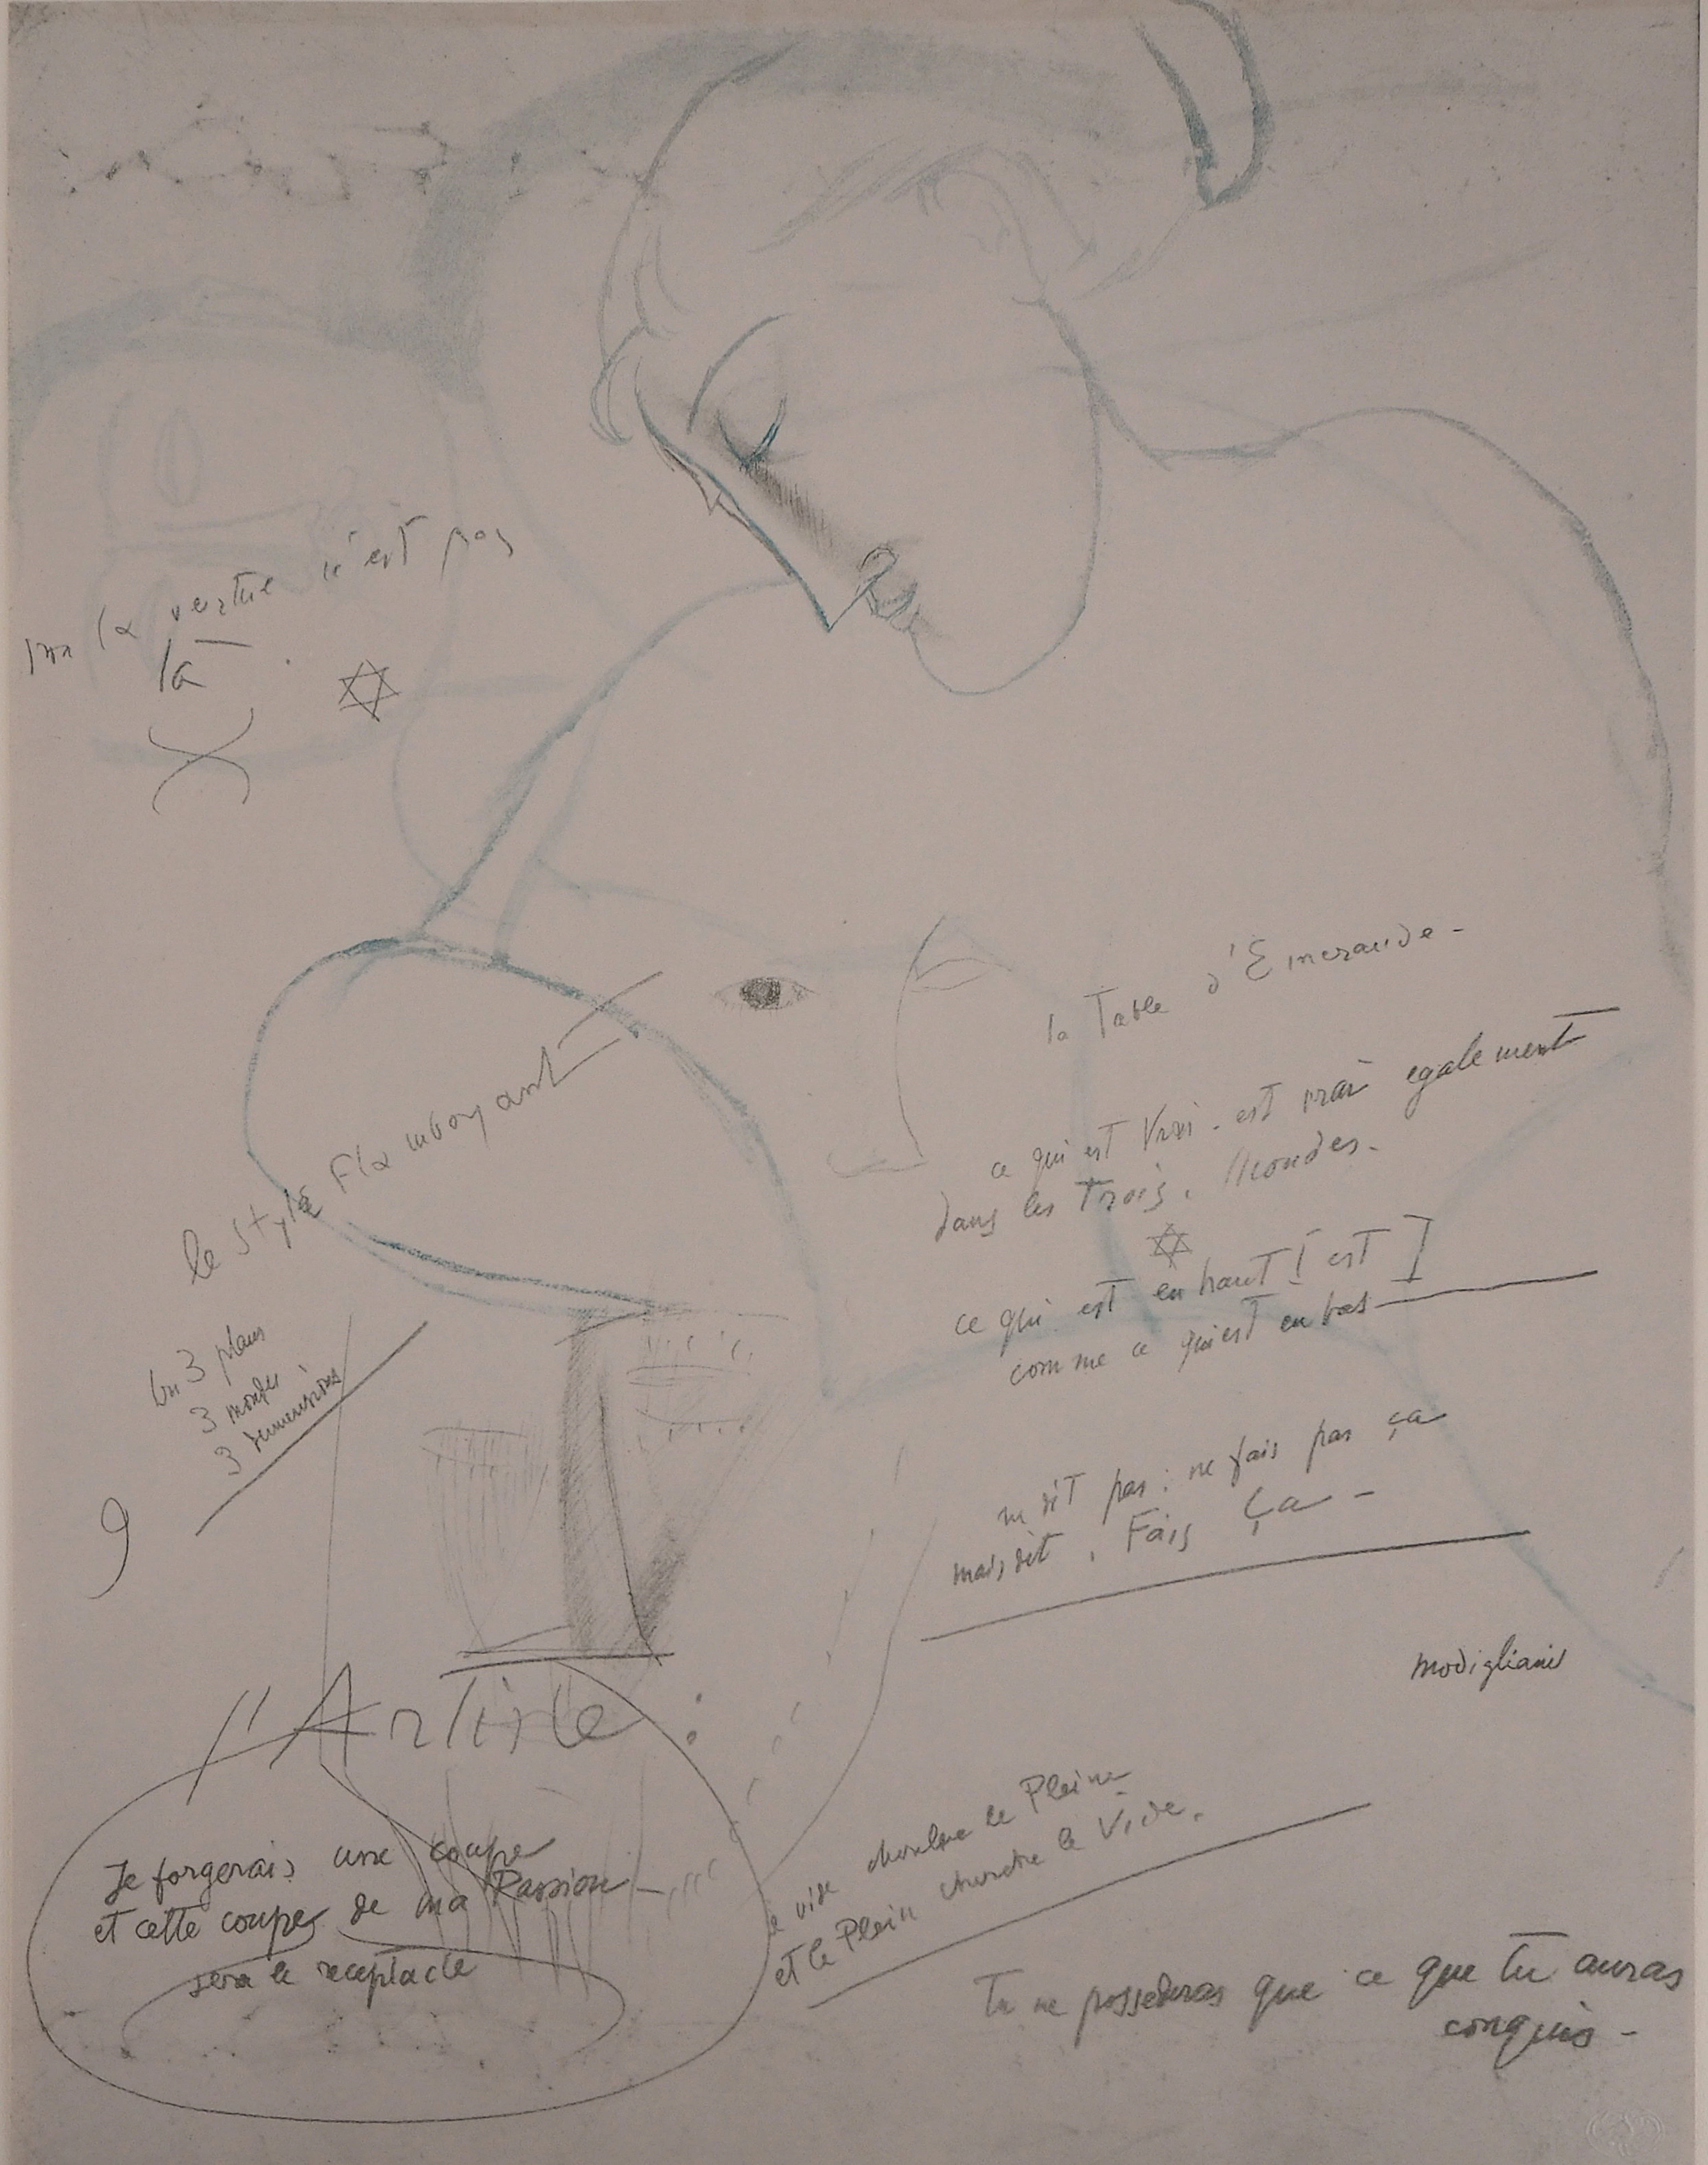 la vertue n'est pas
là
la Table d'Emeraude -
ce qui est Vrai . est vrai egalement
dans les Trois . Mondes .
ce qui est en haut est
comme ce qui est en bas
le Style Flamboyant
3 plans
3 mondes
3 dimensions
9
ne dit pas : ne fais pas ça
mais dit . Fais ça -
Modigliani
l'Artiste :
Je forgerais une coupe
et cette coupe de ma Passion -
sera le receptacle
vide cherche le Plein
et le Plein cherche le Vide .
Tu ne possederas que ce que tu auras
conquis -